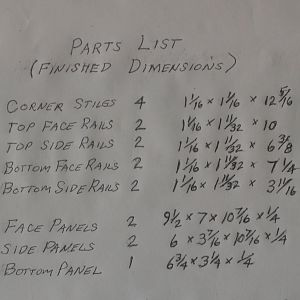 PARTS LIST
(FINISHED DIMENSIONS)
CORNER STILES 4 1 1/16 × 1 1/16 × 12 5/16
TOP FACE RAILS 2 1 1/16 × 1 11/32 × 10
TOP SIDE RAILS 2 1 1/16 × 1 11/32 × 6 3/8
BOTTOM FACE RAILS 2 1 1/16 × 1 11/32 × 7 1/4
BOTTOM SIDE RAILS 2 1 1/16 × 1 11/32 × 3 11/16
FACE PANELS 2 9 1/2 × 7 × 10 7/16 × 1/4
SIDE PANELS 2 6 × 3 7/16 × 10 7/16 × 1/4
BOTTOM PANEL 1 6 3/4 × 3 1/4 × 1/4